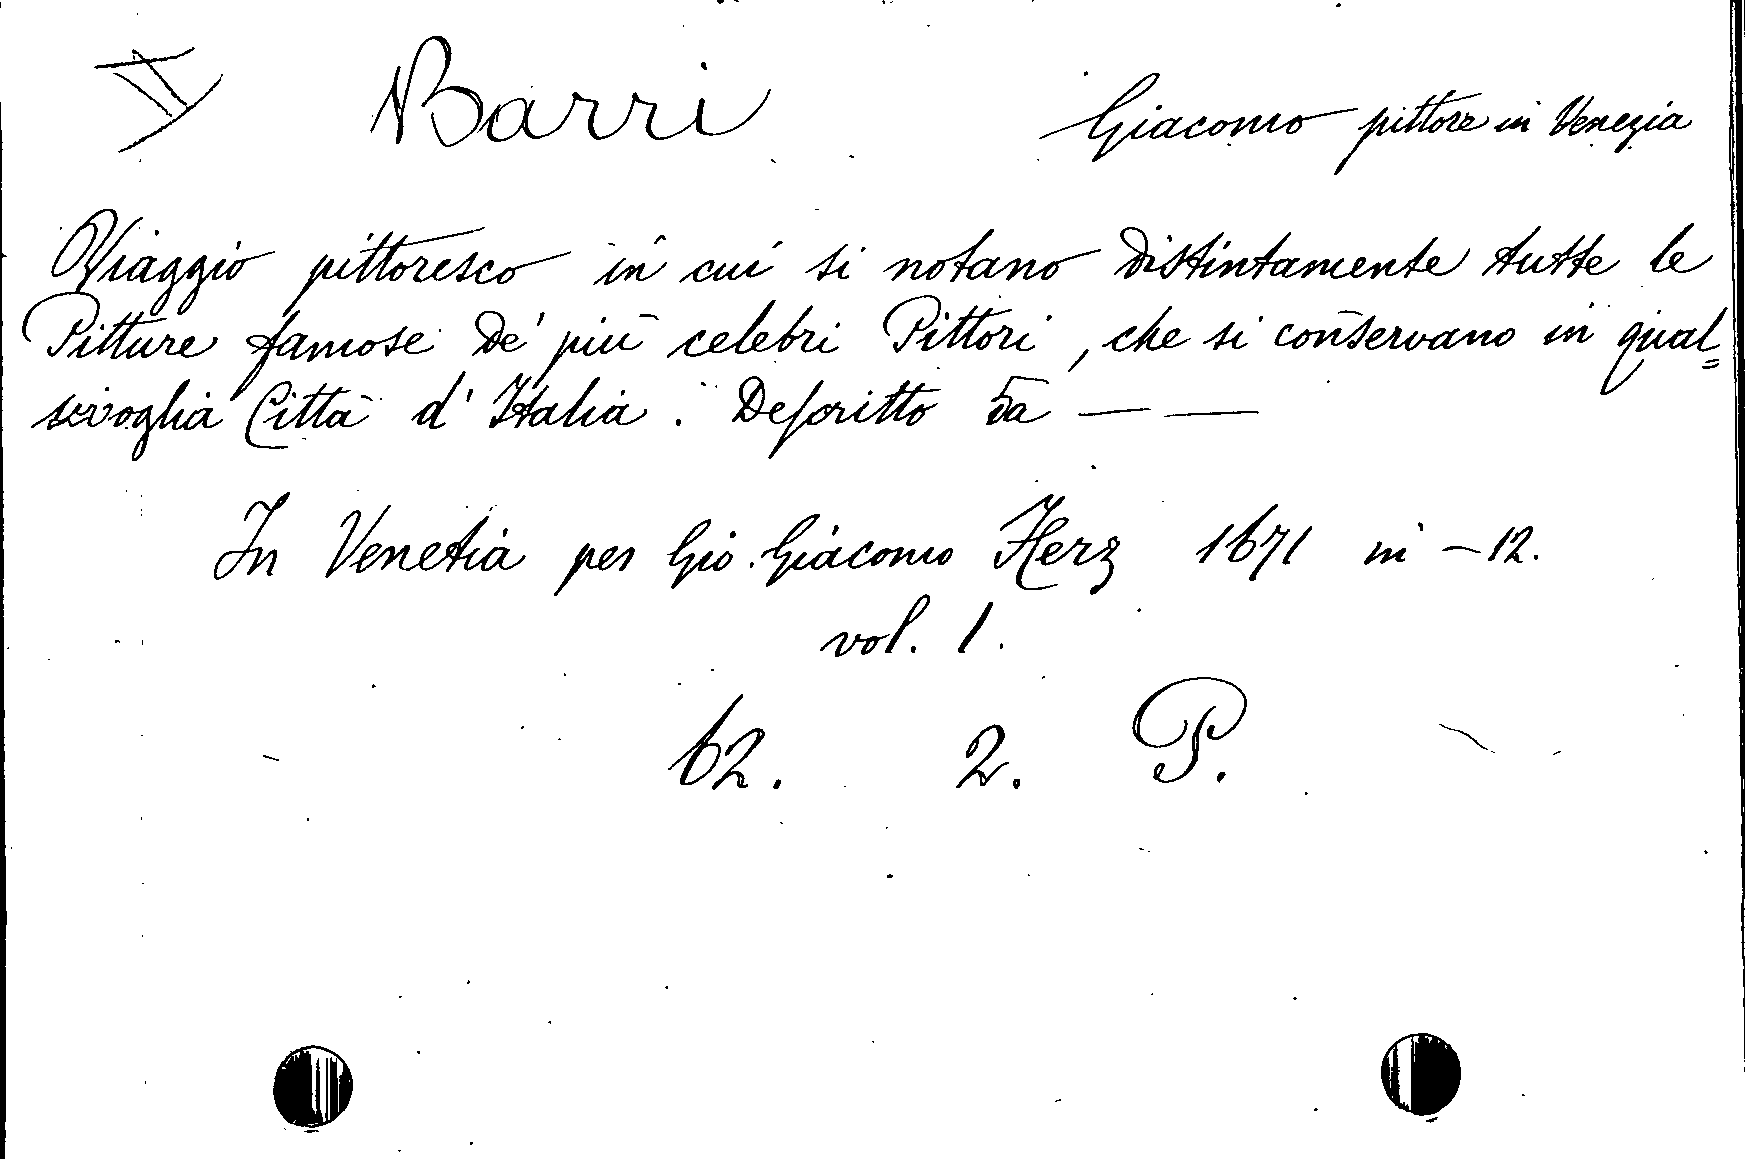 Barri Giacomo pittore in Venezia
Viaggio pittoresco in cui si notano distintamente tutte le
Pitture famose de' più celebri Pittori, che si conservano in qual=
sivoglia Città d'Italia. Descritto da — —
In Venetia per Gio. Giacomo Herz 1671 in -12.
vol. 1.
62. 2. P.